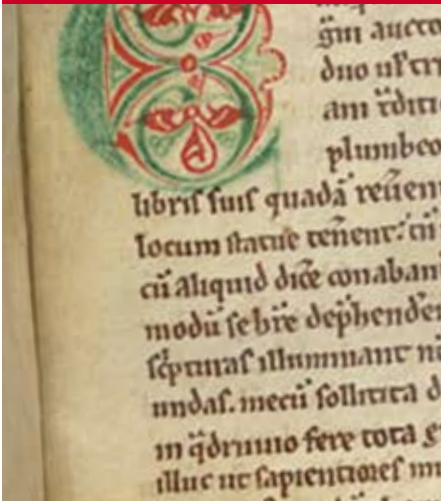 gni aucto
duo ul' tri
plumbeo
libris suis quadā reuer
locum statue tenent. cū
cū aliquid dicē conaban
modū febrē dephender
scpturas illuminant n
undas. mecū sollicita d
in qdruuio fere tota g
illuc ut sapientiores m